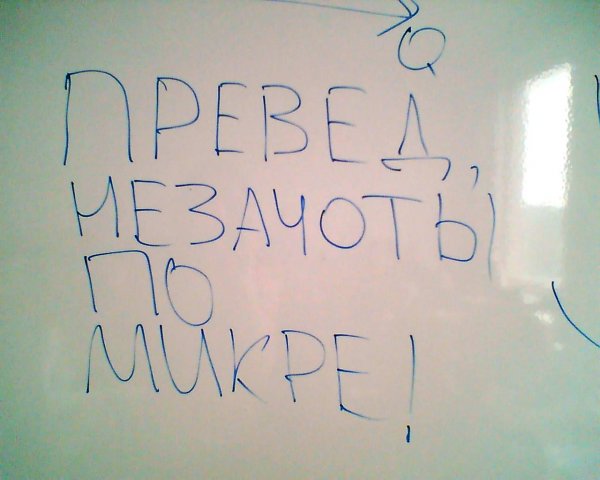 Q
ПРЕВЕД,
НЕЗАЧОТЫ
ПО
МИКРЕ!